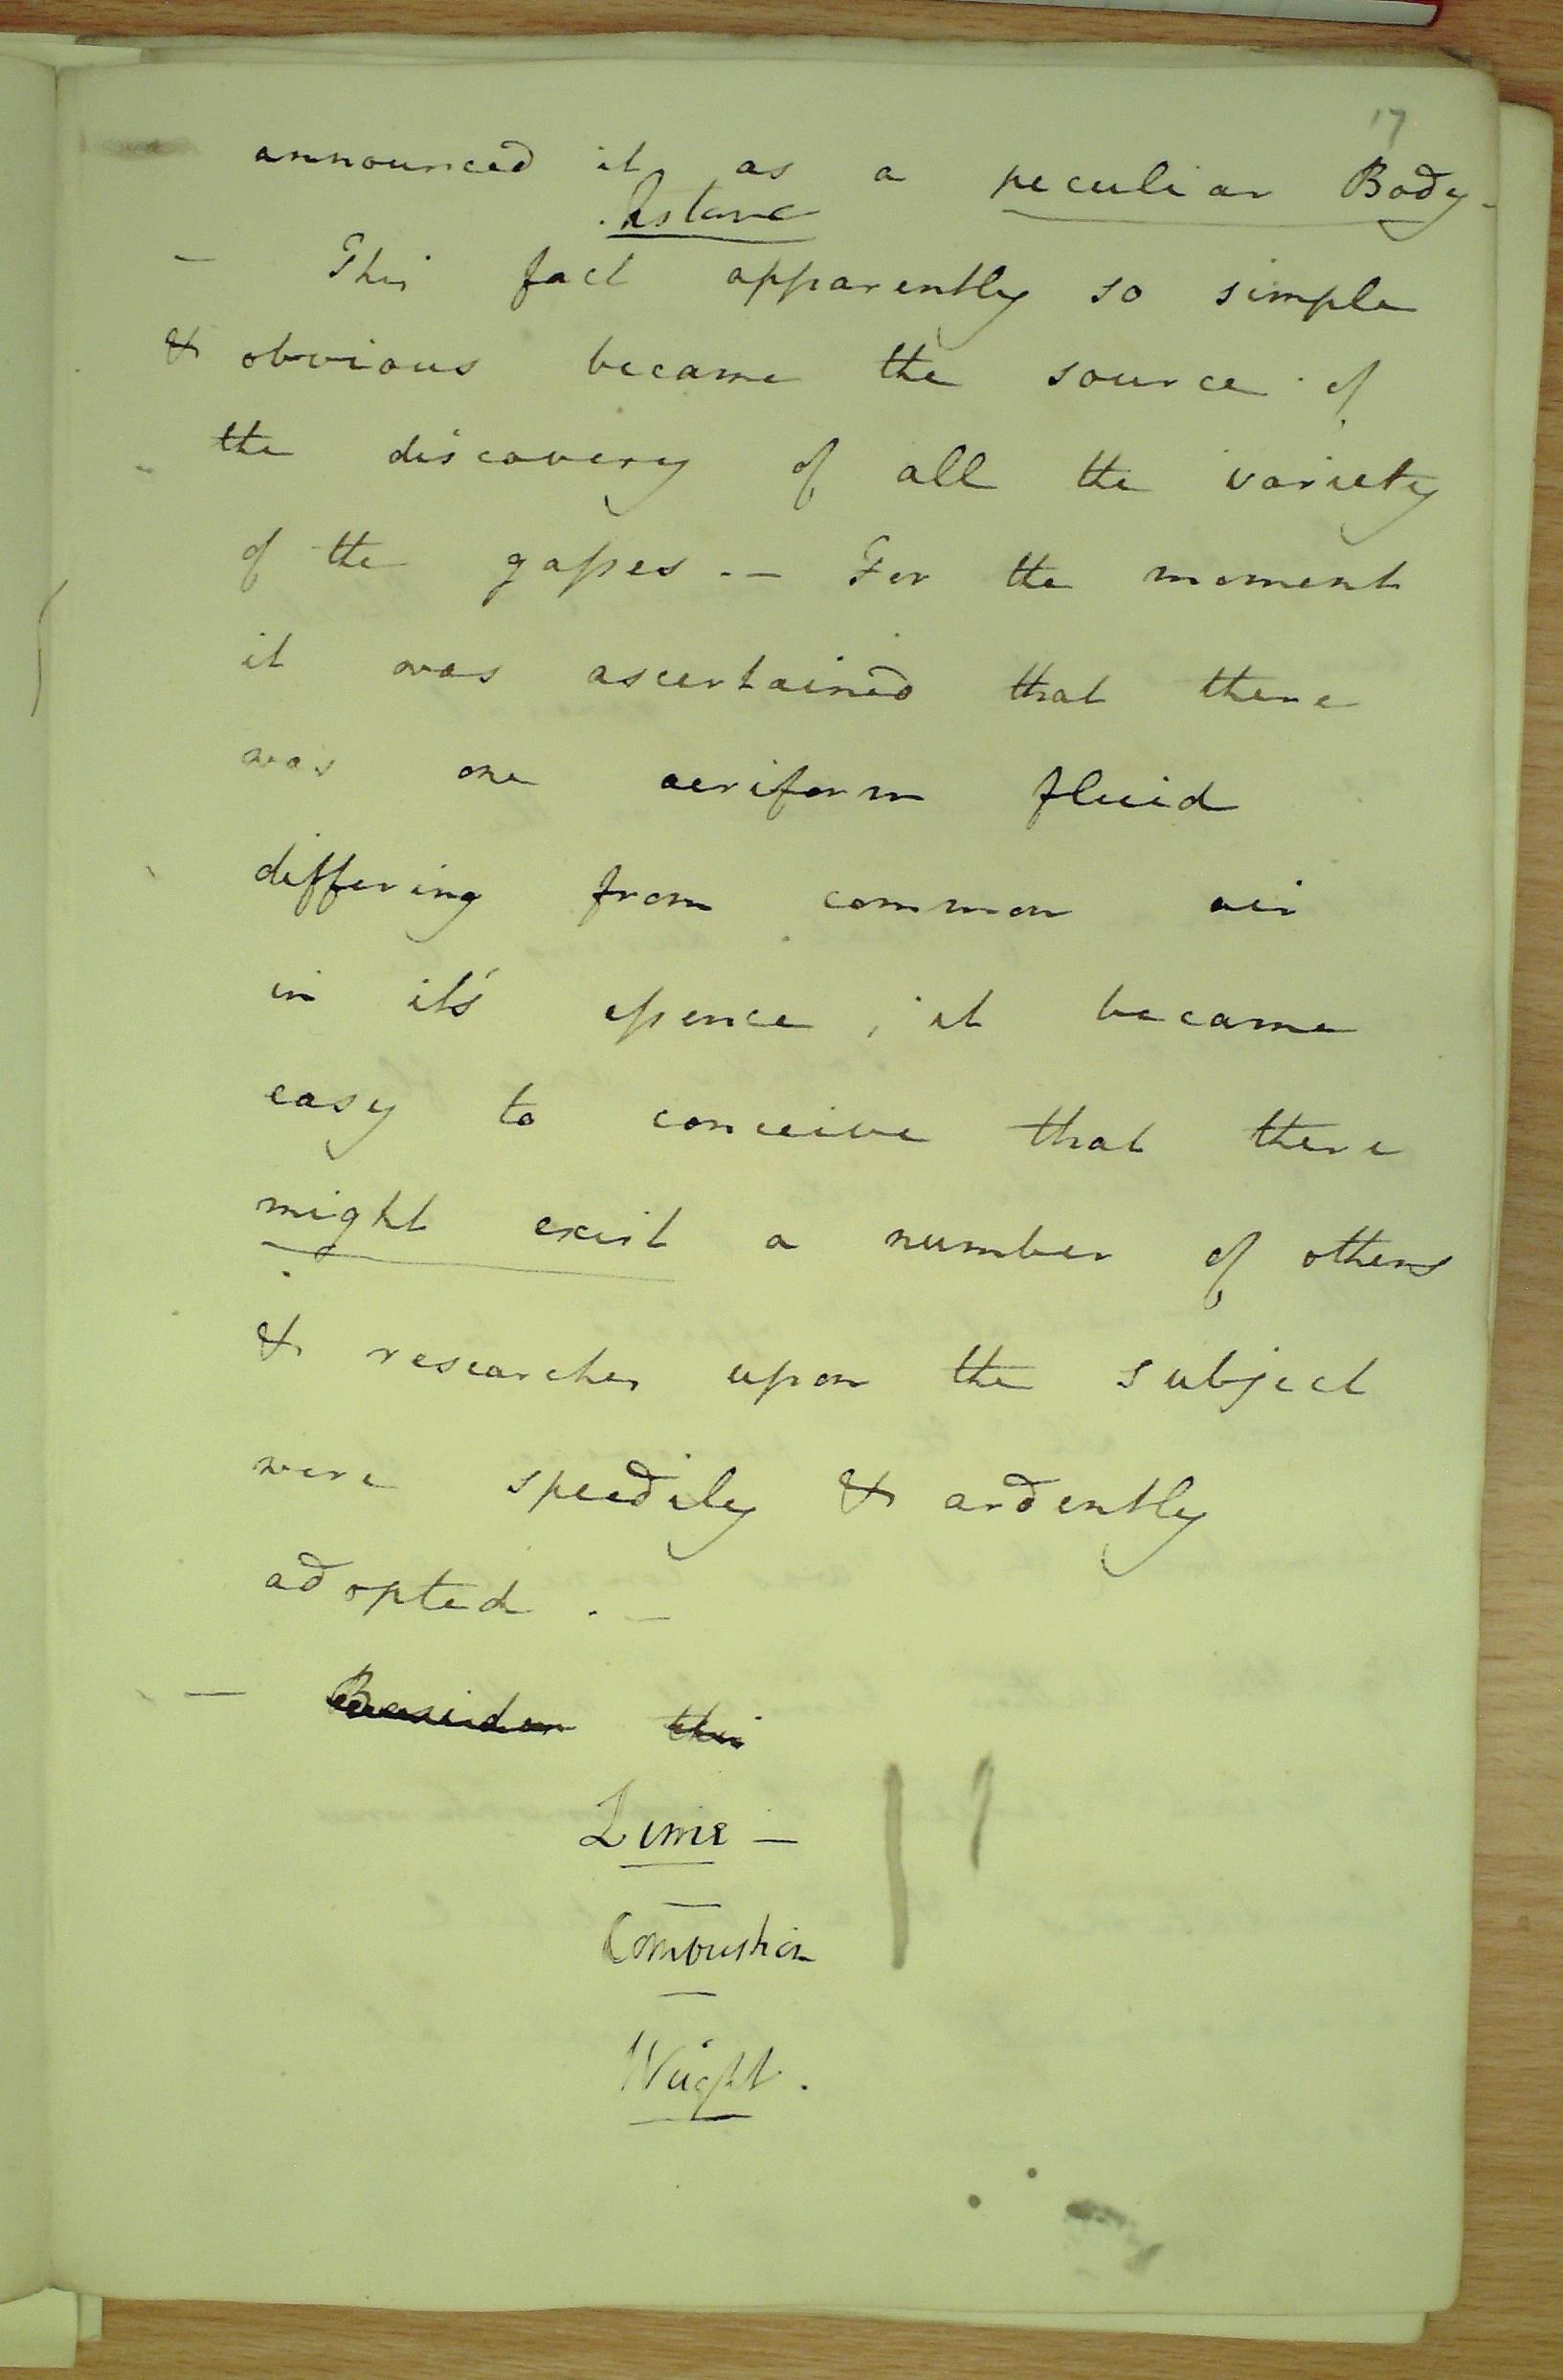 17
announced it as a peculiar Body -
Instance
- This fact apparently so simple
& obvious became the source of
the discovery of all the variety
of the gasses. - For the moment
it was ascertained that there
was one aeriform fluid
differing from common air
in it's essence, it became
easy to conceive that there
might exist a number of others
& researches upon the subject
were speedily & ardently
adopted. -
- Besides this
Lime -
Combustion
Weight.